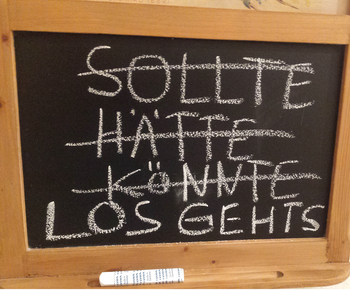 SOLLTE
HÄTTE
KÖNNTE
LOS GEHTS